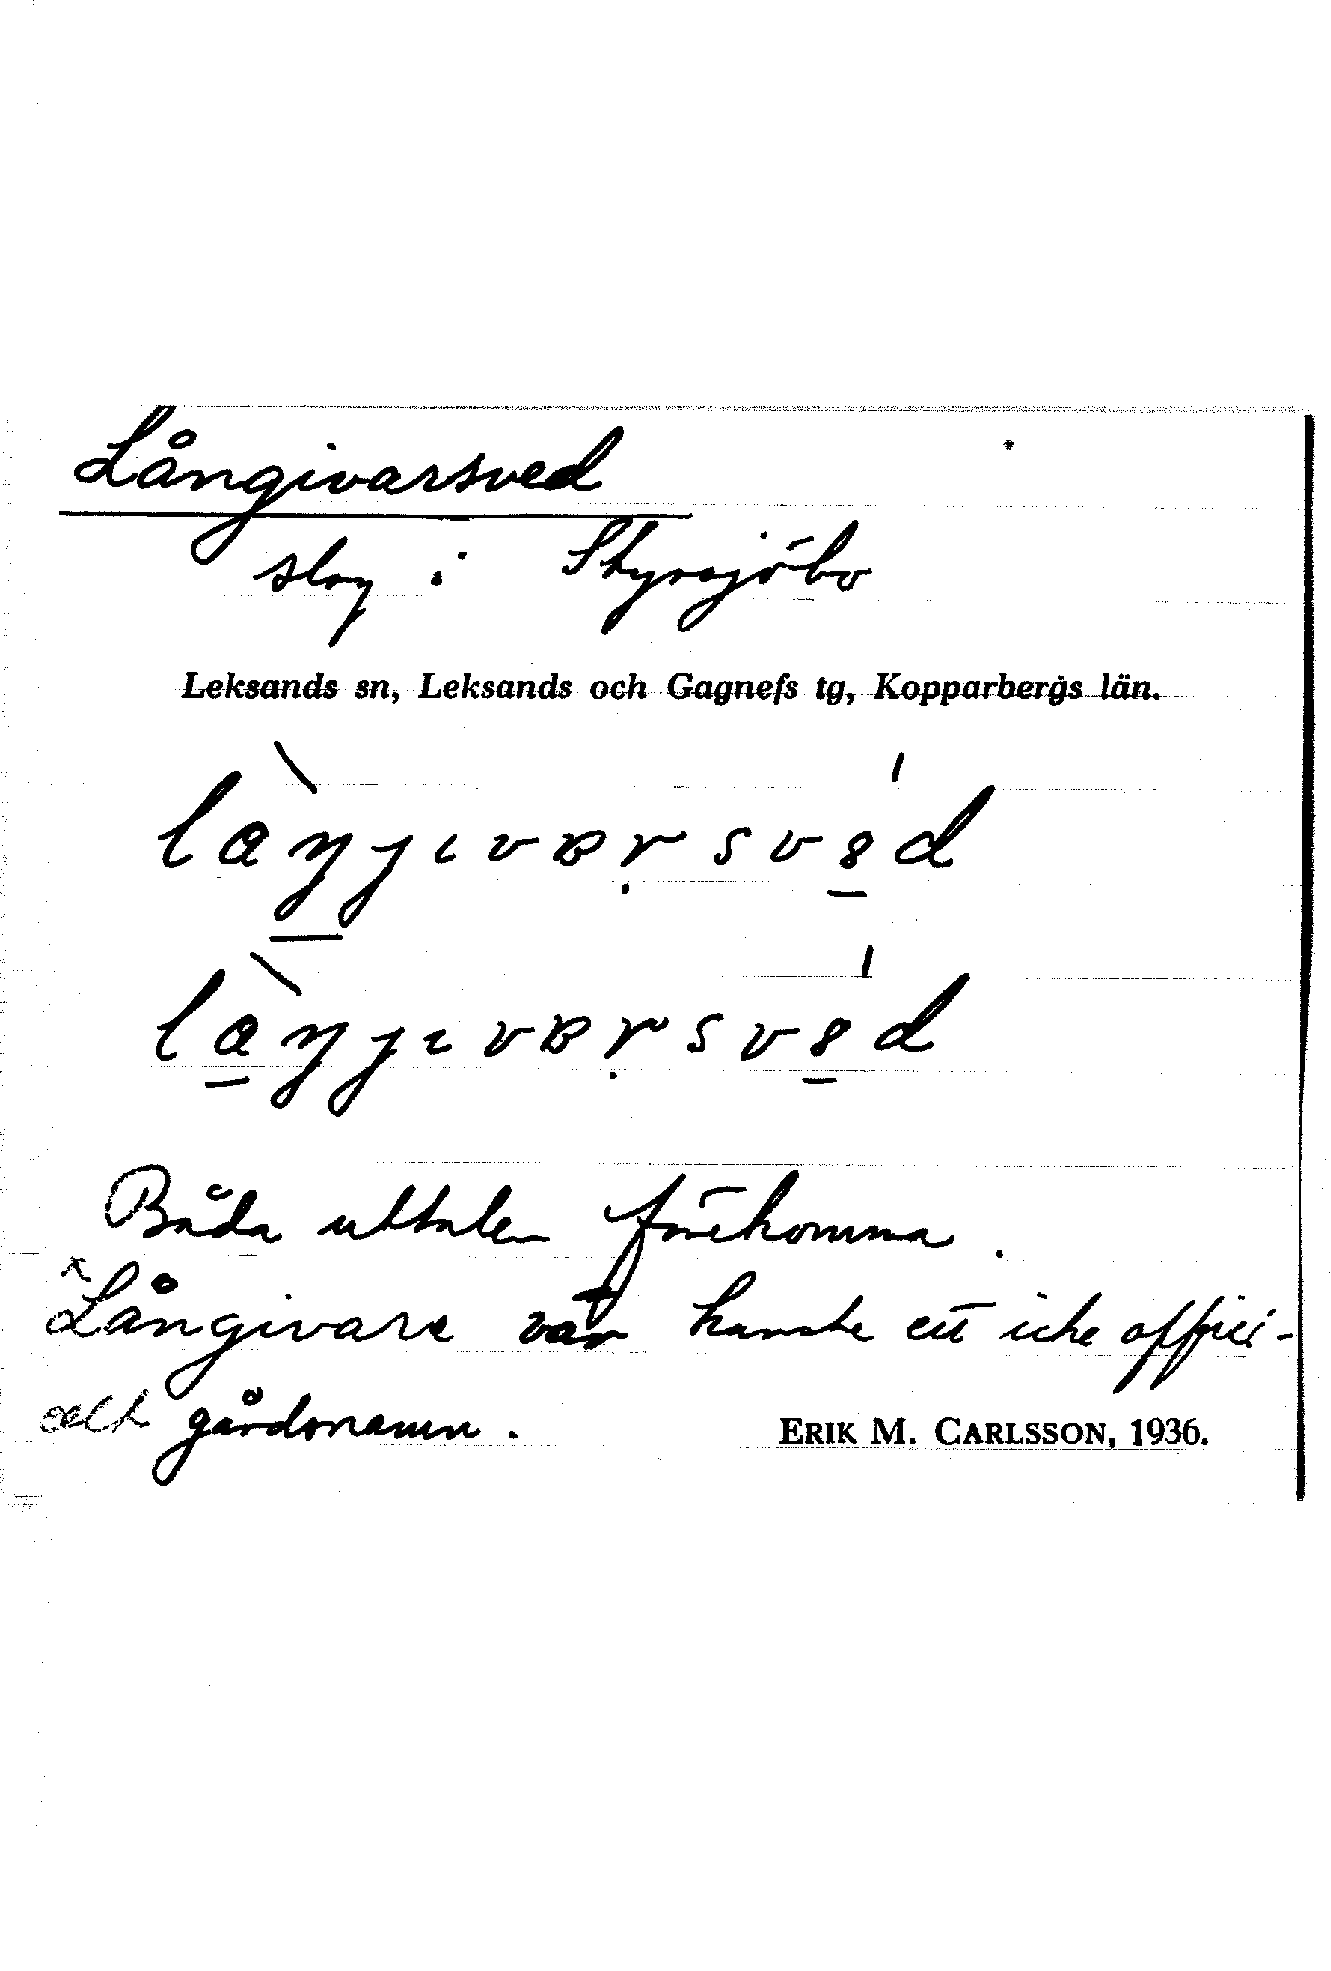 Långivarsved
slog i Styrsjöbo
Leksands sn, Leksands och Gagnefs tg, Kopparbergs län.
Båda uttalen förekomma.
Långivars var kanske ett icke offici-
ellt gårdsnamn.
ERIK M. CARLSSON, 1936.